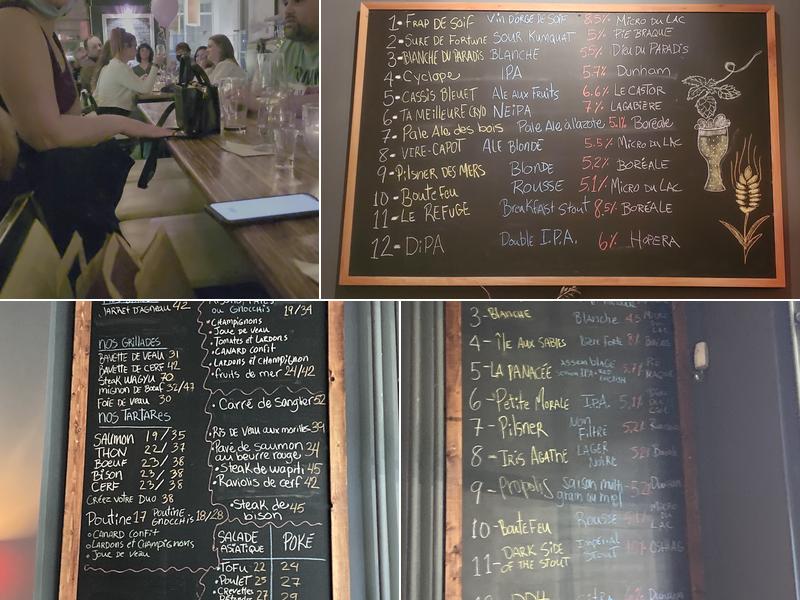 1- FRAP DE SOIF VIN D'ORGE DE SOIF 8.5% MICRO DU LAC
2- SURE DE FORTUNE SOUR KUMQUAT 5% PIE BRAQUE
3- BLANCHE DU PARADIS BLANCHE 55% DIEU DU PARADIS
4- Cyclope IPA 5.7% Dunham
5- CASSIS BLEUET ALE AUX FRUITS 6.6% LE CASTOR
6- TA MEILLEURE CRYO NEIPA 7% LAGABIÈRE
7- Pale Ale des bois Pale Ale à l'azote 5.1% Boréale
8- VIRE-CAPOT ALE BLONDE 5.5% MICRO DU LAC
9- PILSNER DES MERS BLONDE 5,2% BORÉALE
10- BOUTEFEU ROUSSE 5.1% MICRO DU LAC
11- LE REFUGE Breakfast Stout 8,5% BORÉALE
12- DIPA Double I.P.A. 6% HOPERA
JARRET D'AGNEAU 42
NOS GRILLADES
BAVETTE DE VEAU 31
BAVETTE DE CERF 42
STEAK WAGYU 70
MIGNON DE BOEUF 32/47
FOIE DE VEAU 30
NOS TARTARES
SAUMON 19/35
THON 22/37
BOEUF 23/38
BISON 23/38
CERF 23/38
CRÉEZ VOTRE DUO 38
Poutine 17 POUTINE GNOCCHIS 18/28
• CANARD CONFIT
• LARDONS ET CHAMPIGNONS
• JOUE DE VEAU
OU GNOCCHIS 19/34
• CHAMPIGNONS
• JOUE DE VEAU
• TOMATES ET LARDONS
• CANARD CONFIT
• LARDONS ET CHAMPIGNON
• fruits de mer 24/42
• Carré de Sanglier 52
• RIS DE VEAU AUX MORILLES 39
• Pavé de saumon 34
au beurre rouge
• Steak de wapiti 45
• Raviolis de cerf 42
• Steak de 45
bison
SALADE ASIATIQUE POKÉ
• TOFU 22 24
• POULET 25 27
• CREVETTES 27 29
3- BLANCHE Blanche 4.5 MICRO
4- ÎLE AUX SABLES Bière Forte 8%
5- LA PANACÉE assemblage
6- Petite Morale I.P.A. 5,1%
7- Pilsner Non Filtré 5,2%
8- IRIS AGATHE LAGER NOIRE
9- Propolis saison multi grain au miel
10- BOUTEFEU Rousse MICRO DU LAC
11- DARK SIDE OF THE STOUT Impérial Stout